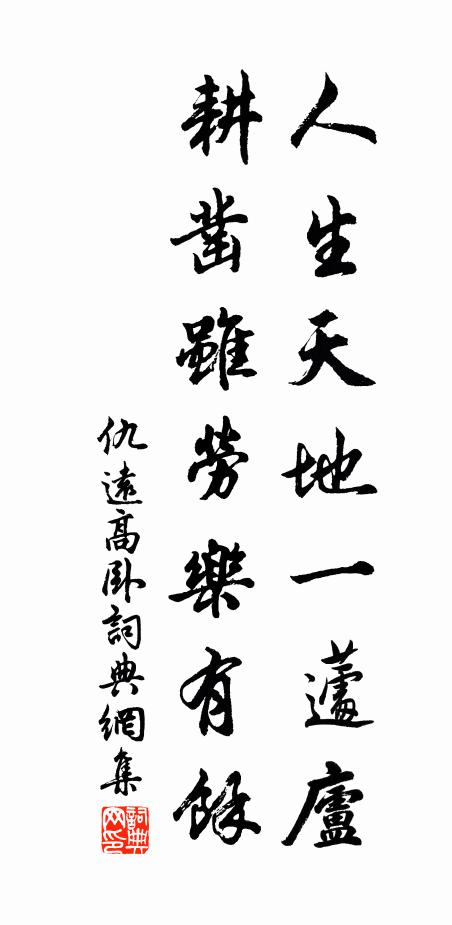 人生天地一蘧廬
耕凿雖勞樂有餘
仇遠高卧詞典網集
詞典网印